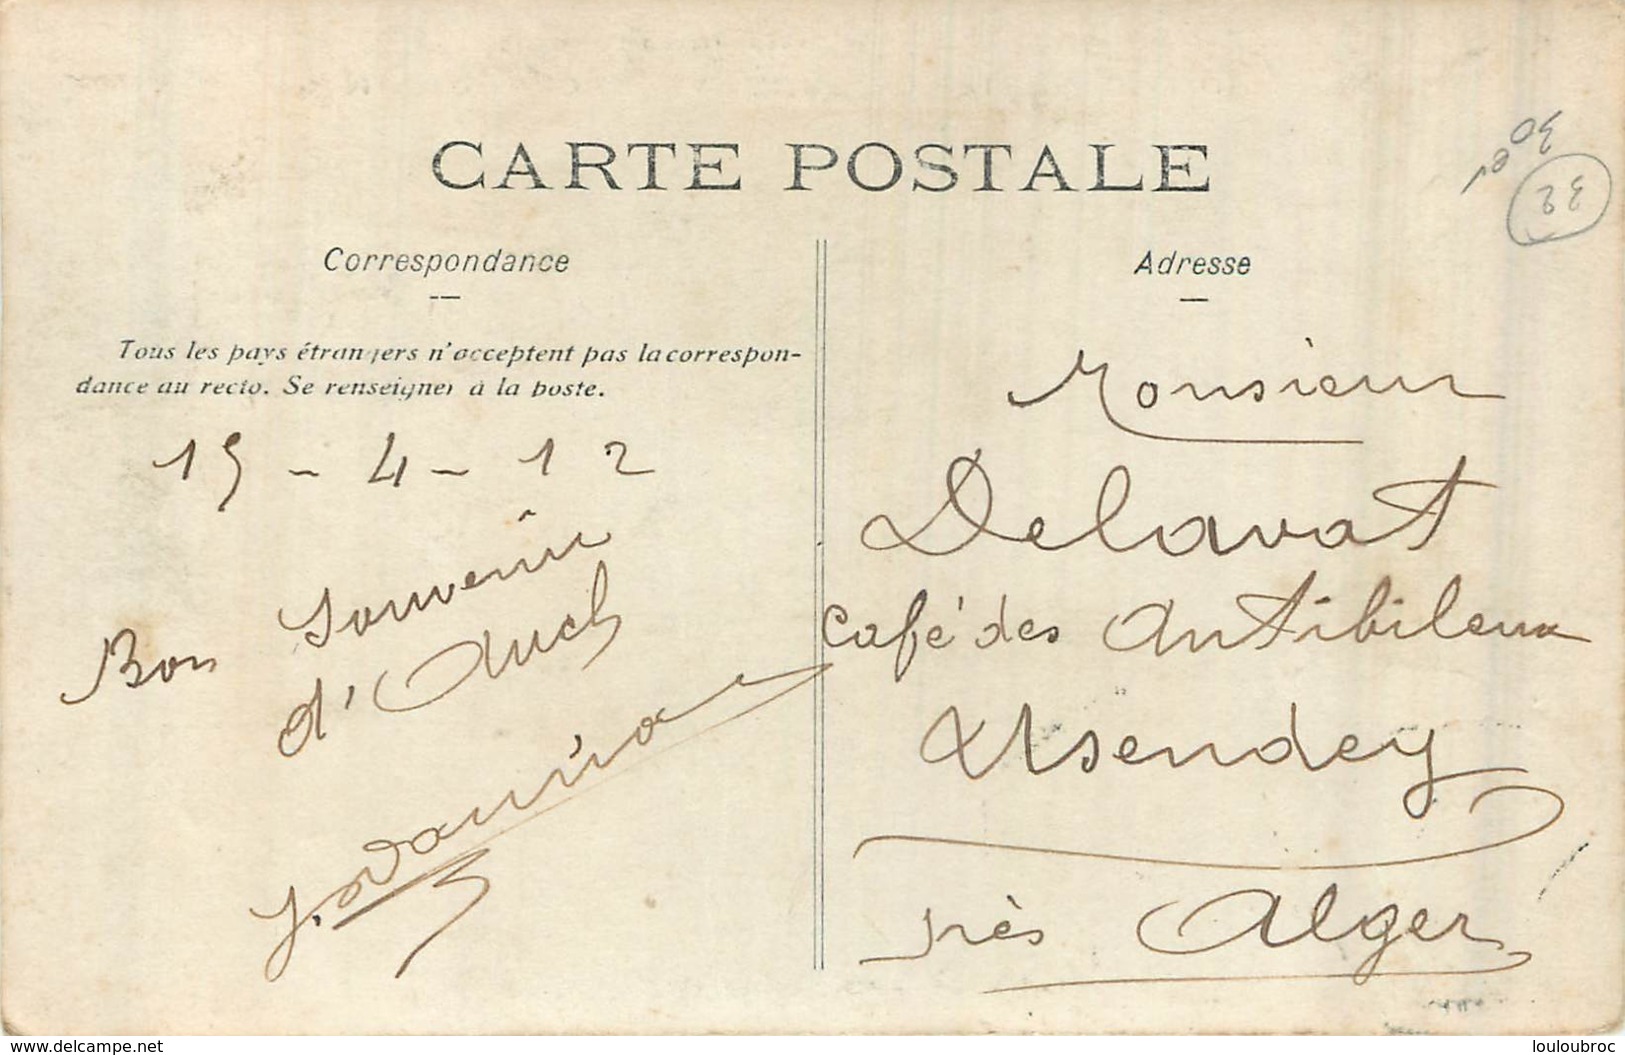 CARTE POSTALE
Correspondance
Tous les pays étrangers n'acceptent pas la correspon-
dance au recto. Se renseigner à la poste.
15 - 4 - 12
Bon Souvenir
d'Auch
Adresse
Monsieur
Delavat
Café des Antibileux
près Alger
32
www.delcampe.net
louloubroc